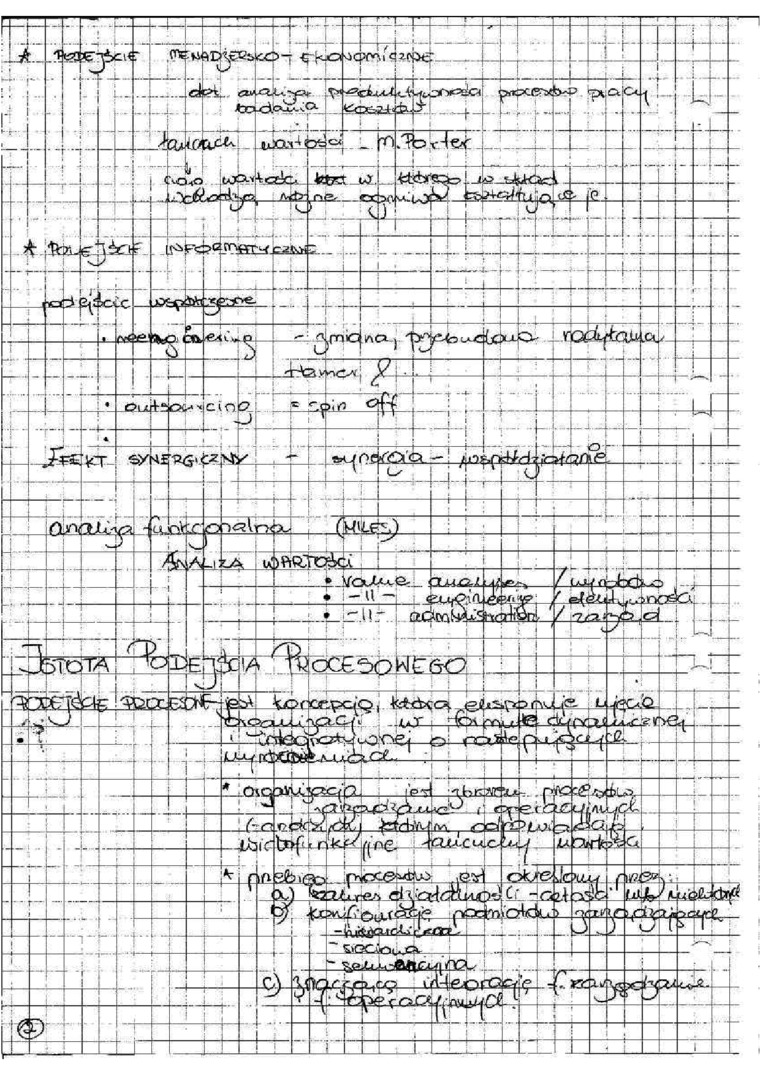 * PODEJŚCIE MENADŻERSKO-EKONOMICZNE
dot. analiza produktywności procesów pracy
badania kosztów
łańcuch wartości - M. Porter
wartości w którego w skład
wchodzą różne ogniwa kształtujące je.
* PODEJŚCIE INFORMATYCZNE
podejście współczesne
• reengineering - zmiana, przebudowa
Hamer &
• outsourcing = spin off
•
EFEKT SYNERGICZNY - synergia - współdziałanie
analiza funkcjonalna (MILES)
ANALIZA WARTOŚCI
• value analyses / wyrobów
• -11- engineering / efektywności
• -11- administration / zarząd
ISTOTA PODEJŚCIA PROCESOWEGO
PODEJŚCIE PROCESOWE jest koncepcją, która eksponuje ujęcie
organizacji w formule dynamicznej
i integratywnej o następujących
•
* organizacja jest zbiorem procesów
zarządzania i operacyjnych
którym odpowiadają
wielofunkcyjne łańcuchy wartości
* przebieg procesów jest określony przez:
a) zakres działalności - całość lub
b) konfigurację podmiotów zarządzających
- hierarchiczna
- sieciowa
- sekwencyjna
c) znaczącą integrację f. zarządzania
f. operacyjnych.
2